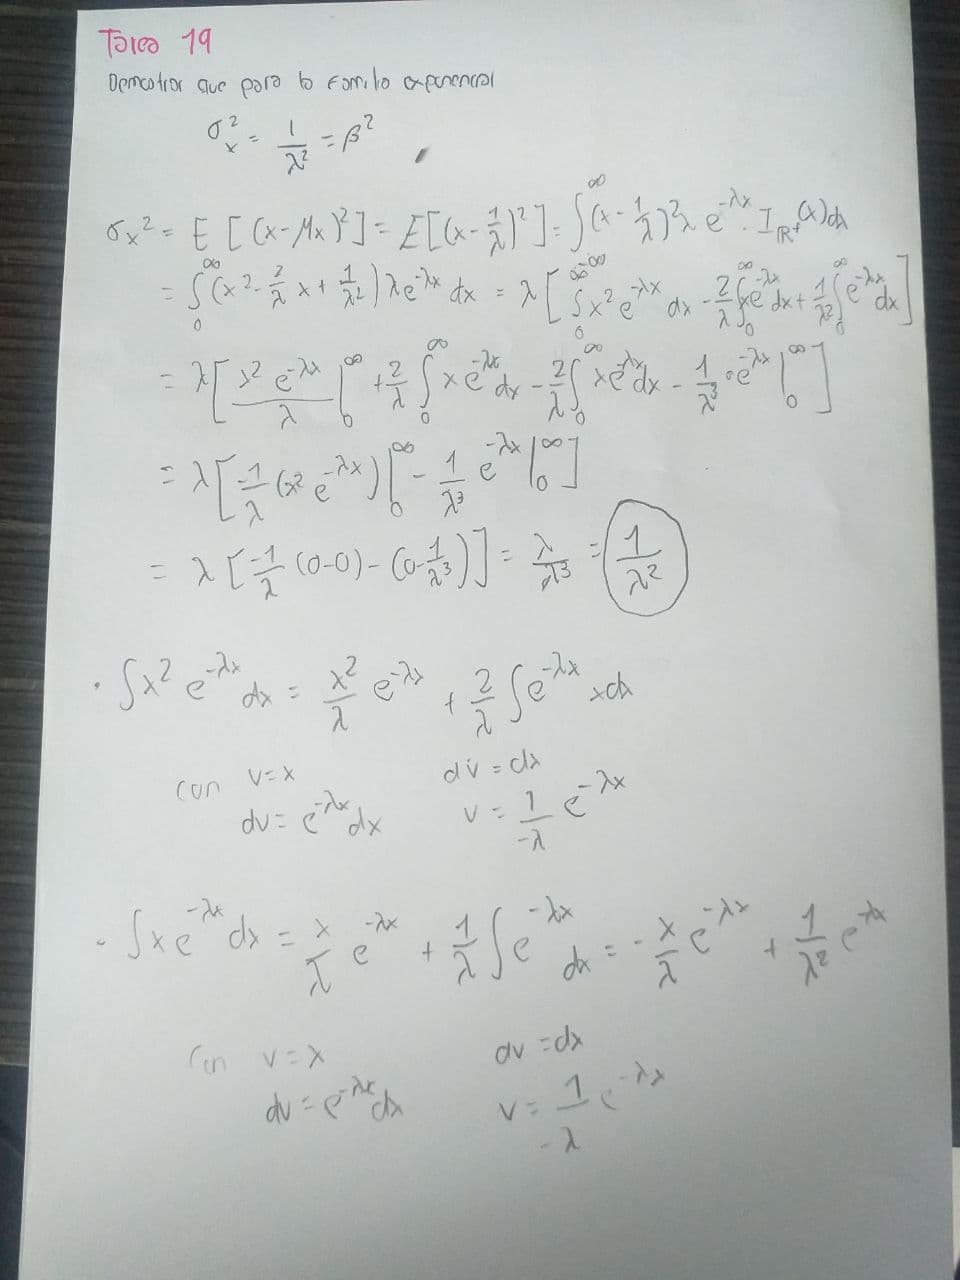 Tarea 19
Demostrar que para la familia exponencial
σ_x^2 = 1/λ^2 = β^2
σ_x^2 = E[(x-μ_x)^2] = E[(x-1/λ)^2] = ∫_{-∞}^∞ (x-1/λ)^2 λ e^{-λx} · I_{ℝ^+}(x)dx
= ∫_0^∞ (x^2 - 2/λ x + 1/λ^2) λe^{-λx} dx = λ[∫_0^∞ x^2 e^{-λx} dx - 2/λ ∫_0^∞ xe^{-λx} dx + 1/λ^2 ∫_0^∞ e^{-λx} dx]
= λ[x^2 e^{-λx}/λ |_0^∞ + 2/λ ∫_0^∞ x e^{-λx} dx - 2/λ ∫_0^∞ xe^{-λx} dx - 1/λ^3 · e^{-λx} |_0^∞]
= λ[-1/λ (x^2 e^{-λx})|_0^∞ - 1/λ^3 e^{-λx} |_0^∞]
= λ[-1/λ (0-0) - (0-1/λ^3)] = λ/λ^3 = 1/λ^2
· ∫x^2 e^{-λx} dx = x^2/λ e^{-λx} + 2/λ ∫e^{-λx} xdx
con v=x dv=dx
dv=e^{-λx}dx v=1/-λ e^{-λx}
· ∫xe^{-λx} dx = x/λ e^{-λx} + 1/λ ∫e^{-λx} dx = -x/λ e^{-λx} + 1/λ^2 e^{-λx}
Con v=x dv=dx
dv=e^{-λx}dx v=1/-λ e^{-λx}